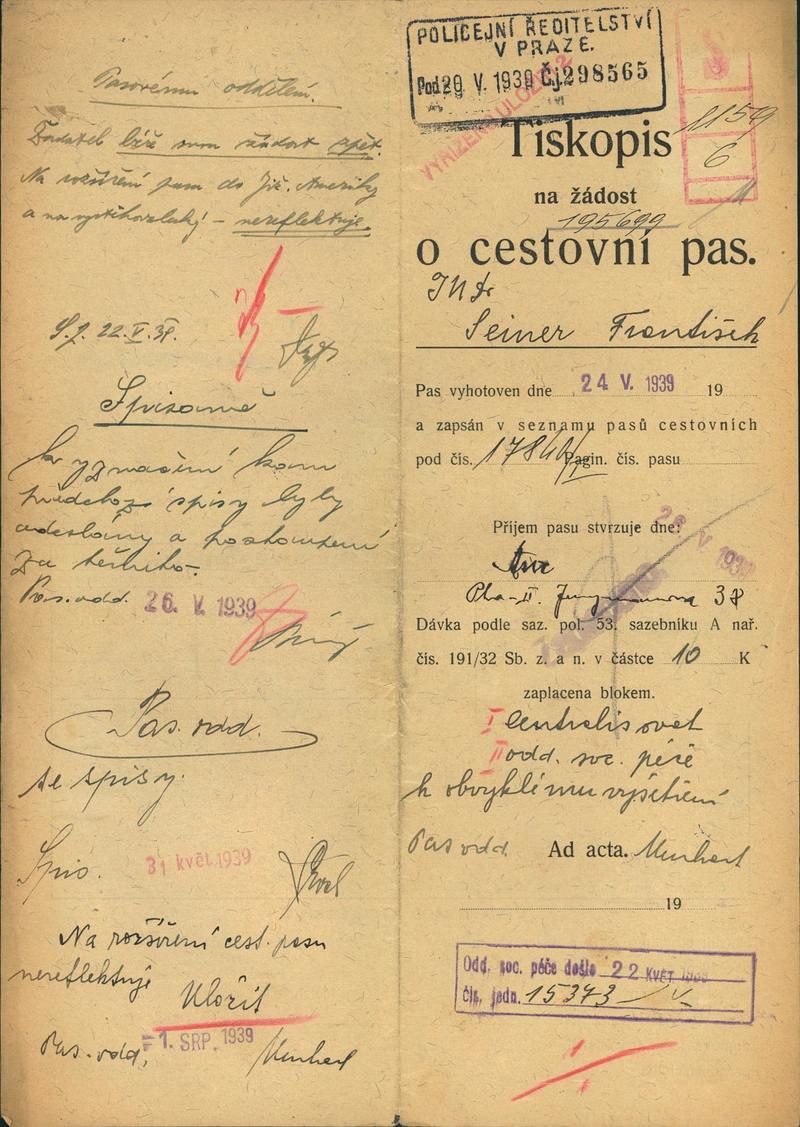 Pasovému oddělení.
Žadatel béře svou žádost zpět.
Na rozšíření pasu do Již. Ameriky
a na vystěhovalecký – nereflektuje.
22.V.39.
Spisovně
k vyznačení kam
předchozí spisy byly
odeslány a postoupení
za těmito.
Pas. odd. 26. V. 1939
Pas. odd.
se spisy.
Spis. 31 KVĚT. 1939
Na rozšíření cest. pasu
nereflektuje
Uložit
Pas. odd. 1. SRP. 1939
POLICEJNÍ ŘEDITELSTVÍ
V PRAZE.
Pod 20 V. 1939 Čj. 298565
VYŘÍZENO ULOŽENO
11159
6
Tiskopis
na žádost
195699
o cestovní pas.
JUDr
Seiner František
Pas vyhotoven dne 24 V. 1939 19
a zapsán v seznamu pasů cestovních
pod čís. Pagin. čís. pasu
Příjem pasu stvrzuje dne: 26 V. 1939
Pha-II. Jungmannova 38
Dávka podle saz. pol. 53. sazebníku A nař.
čís. 191/32 Sb. z. a n. v částce 10 K
zaplacena blokem.
I centralisovat
II odd. soc. péče
k obvyklému vyšetření
Pas odd. Ad acta.
19
Odd. soc. péče došlo 22 KVĚT 1939
čís. jedn. 15373